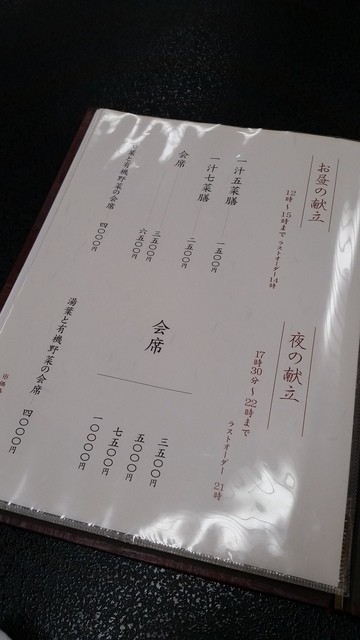 お昼の献立
12時〜15時まで ラストオーダー14時
一汁五菜膳 一五〇〇円
一汁七菜膳 二五〇〇円
会席 三五〇〇円
六五〇〇円
葉と有機野菜の会席 四〇〇〇円
夜の献立
17時30分〜22時まで ラストオーダー 21時
会席
三五〇〇円
五〇〇〇円
七五〇〇円
一〇〇〇〇円
湯葉と有機野菜の会席 四〇〇〇円